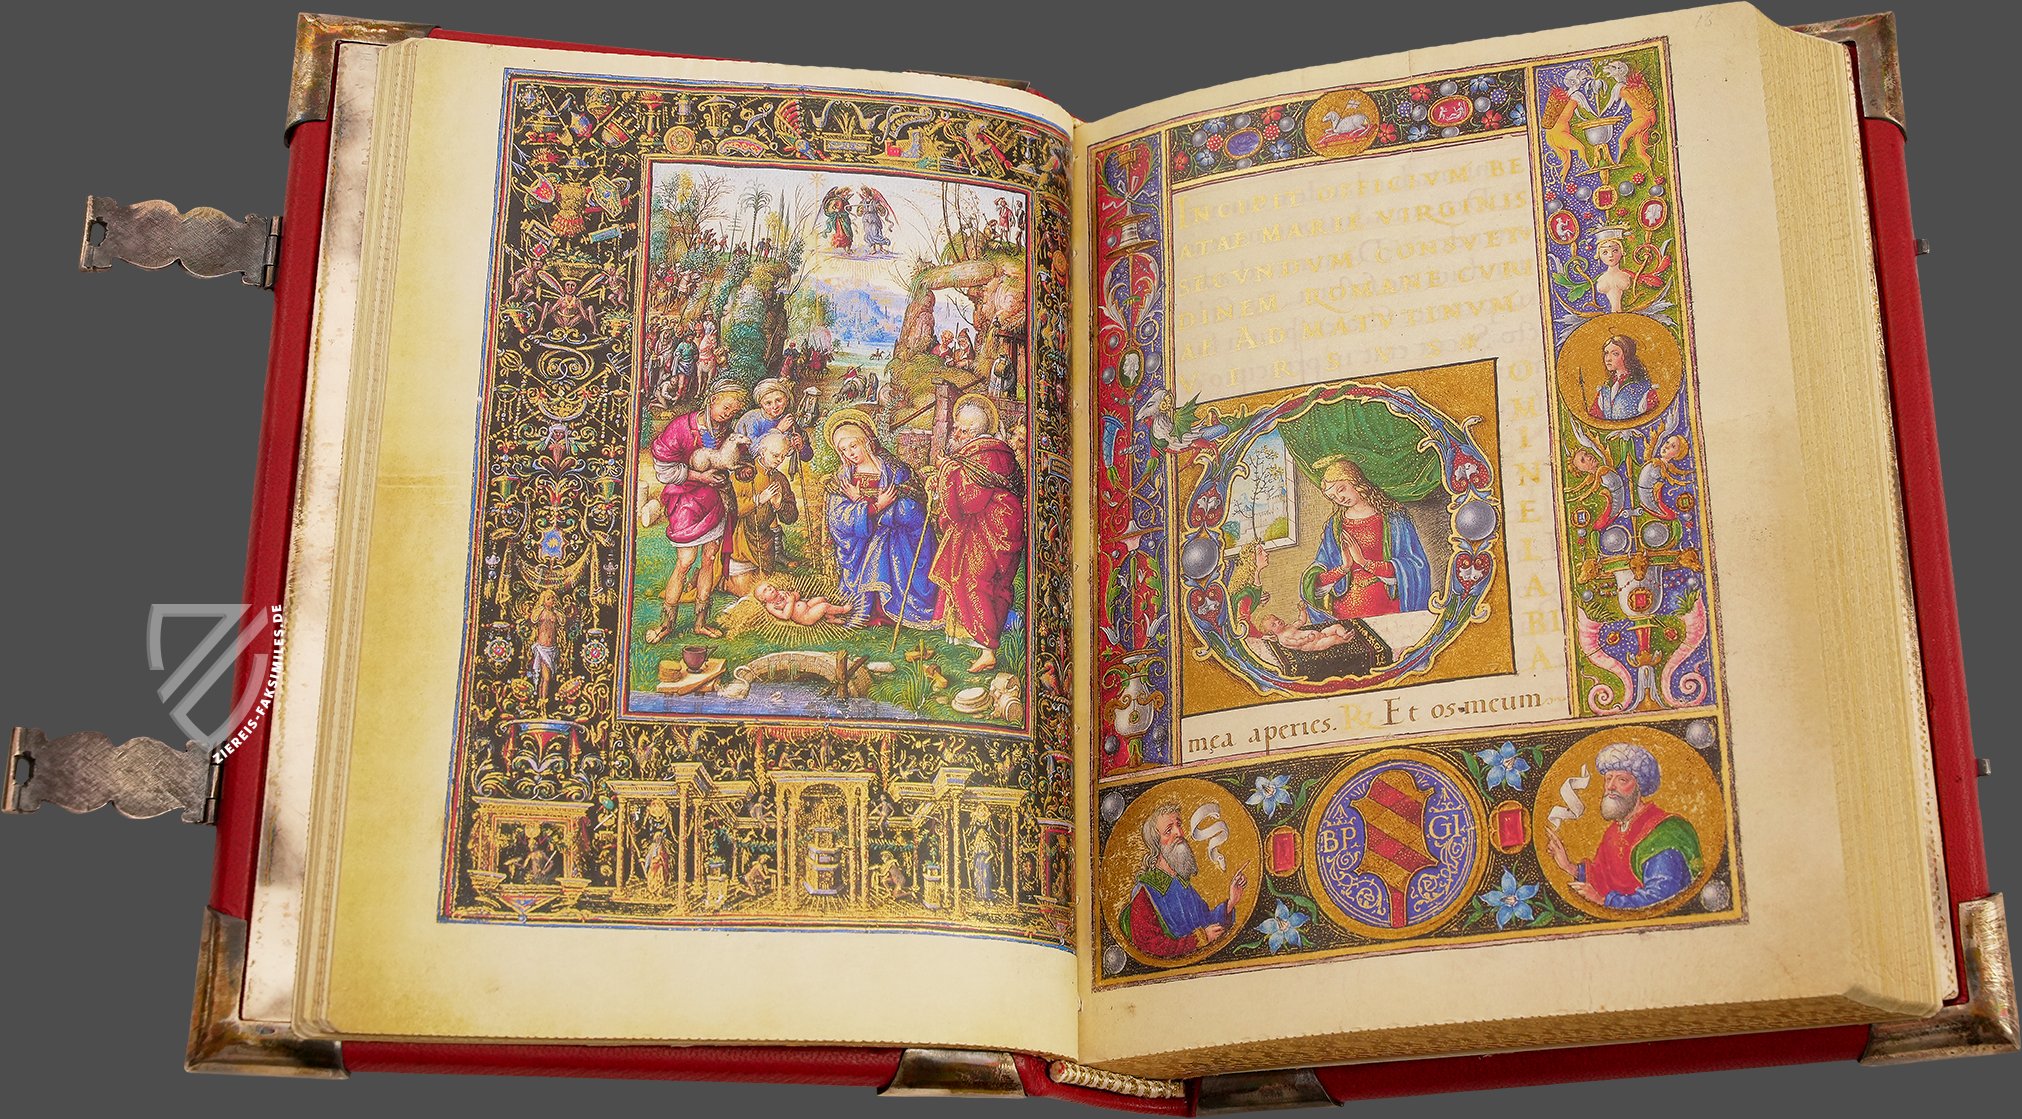 13
INCIPIT OFFICIVM BE
ATAE MARIE VIRGINIS
SECVNDVM CONSVET
DINEM ROMANE CVRI
AE AD MATVTINVM
VERSVS
D
OMINE LABIA
męa aperies. R. Et os meum
BP. GI.
ZIEREIS-FAKSIMILES.DE